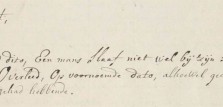 t,
dito, Een mans Slaaf niet wel bij sijn
Overleed, Op voornoemde dato, alhoewel ge
gehad hebbende.